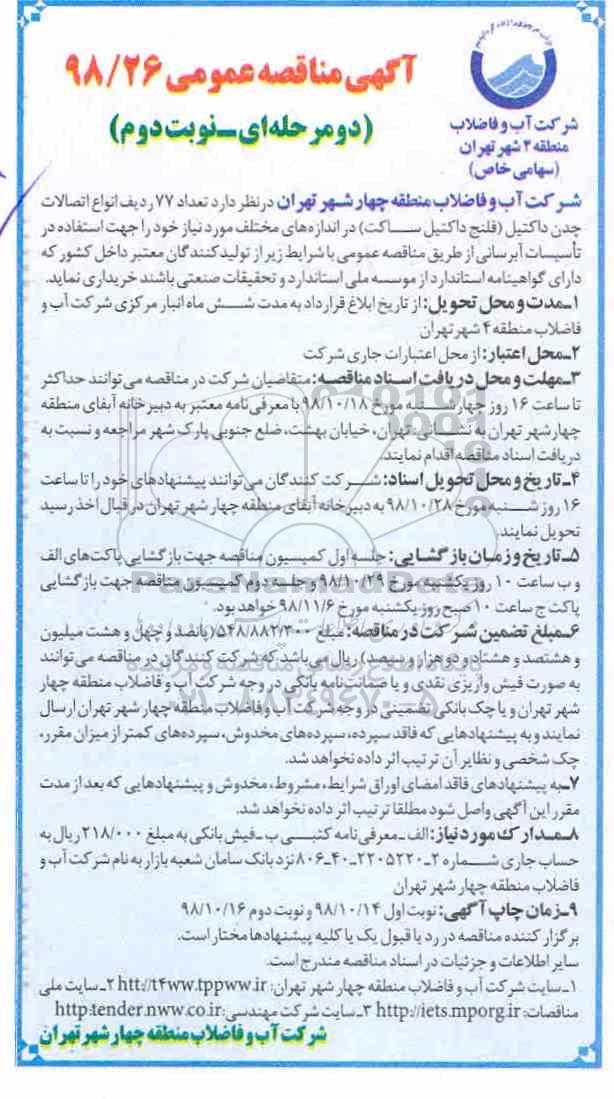 آگهی مناقصه عمومی ۹۸/۲۶
(دو مرحله‌ای ـ نوبت دوم)
شرکت آب و فاضلاب
منطقه ۴ شهر تهران
(سهامی خاص)
شرکت آب و فاضلاب منطقه چهار شهر تهران در نظر دارد تعداد ۷۷ ردیف انواع اتصالات
چدن داکتیل (فلنج داکتیل ساکت) در اندازه‌های مختلف مورد نیاز خود را جهت استفاده در
تأسیسات آبرسانی از طریق مناقصه عمومی با شرایط زیر از تولیدکنندگان معتبر داخل کشور که
دارای گواهینامه استاندارد از موسسه ملی استاندارد و تحقیقات صنعتی باشند خریداری نماید.
۱ـ مدت و محل تحویل: از تاریخ ابلاغ قرارداد به مدت شش ماه انبار مرکزی شرکت آب و
فاضلاب منطقه ۴ شهر تهران
۲ـ محل اعتبار: از محل اعتبارات جاری شرکت
۳ـ مهلت و محل دریافت اسناد مناقصه: متقاضیان شرکت در مناقصه می‌توانند حداکثر
تا ساعت ۱۶ روز چهارشنبه مورخ ۹۸/۱۰/۱۸ با معرفی‌نامه معتبر به دبیرخانه آبفای منطقه
چهار شهر تهران به نشانی: تهران، خیابان بهشت، ضلع جنوبی پارک شهر مراجعه و نسبت به
دریافت اسناد مناقصه اقدام نمایند.
۴ـ تاریخ و محل تحویل اسناد: شرکت کنندگان می‌توانند پیشنهادهای خود را تا ساعت
۱۶ روز شنبه مورخ ۹۸/۱۰/۲۸ به دبیرخانه آبفای منطقه چهار شهر تهران در قبال اخذ رسید
تحویل نمایند.
۵ـ تاریخ و زمان بازگشایی: جلسه اول کمیسیون مناقصه جهت بازگشایی پاکت‌های الف
و ب ساعت ۱۰ روز یکشنبه مورخ ۹۸/۱۰/۲۹ و جلسه دوم کمیسیون مناقصه جهت بازگشایی
پاکت ج ساعت ۱۰ صبح روز یکشنبه مورخ ۹۸/۱۱/۶ خواهد بود.
۶ـ مبلغ تضمین شرکت در مناقصه: مبلغ ۵۴۸/۸۸۲/۳۰۰ (پانصد و چهل و هشت میلیون
و هشتصد و هشتاد و دو هزار و سیصد) ریال می‌باشد که شرکت کنندگان در مناقصه می‌توانند
به صورت فیش واریزی نقدی و یا ضمانت‌نامه بانکی در وجه شرکت آب و فاضلاب منطقه چهار
شهر تهران و یا چک بانکی تضمینی در وجه شرکت آب و فاضلاب منطقه چهار شهر تهران ارسال
نمایند و به پیشنهادهایی که فاقد سپرده، سپرده‌های مخدوش، سپرده‌های کمتر از میزان مقرر،
چک شخصی و نظایر آن ترتیب اثر داده نخواهد شد.
۷ـ به پیشنهادهای فاقد امضای اوراق شرایط، مشروط، مخدوش و پیشنهادهایی که بعد از مدت
مقرر این آگهی واصل شود مطلقا ترتیب اثر داده نخواهد شد.
۸ـ مدارک مورد نیاز: الف ـ معرفی‌نامه کتبی ب ـ فیش بانکی به مبلغ ۲۱۸/۰۰۰ ریال به
حساب جاری شماره ۲ـ۲۲۰۵۲۲۰ـ۴۰ـ۸۰۶ نزد بانک سامان شعبه بازار به نام شرکت آب و
فاضلاب منطقه چهار شهر تهران
۹ـ زمان چاپ آگهی: نوبت اول ۹۸/۱۰/۱۴ و نوبت دوم ۹۸/۱۰/۱۶
برگزار کننده مناقصه در رد یا قبول یک یا کلیه پیشنهادها مختار است.
سایر اطلاعات و جزئیات در اسناد مناقصه مندرج است.
۱ـ سایت شرکت آب و فاضلاب منطقه چهار شهر تهران: htt://t۴ww.tppww.ir ۲ـ سایت ملی
مناقصات: http://iets.mporg.ir ۳ـ سایت شرکت مهندسی: http:tender.nww.co.ir
شرکت آب و فاضلاب منطقه چهار شهر تهران
ParsNamadData
۰۲۱-۸۸۳۴۹۶۷۰-۵